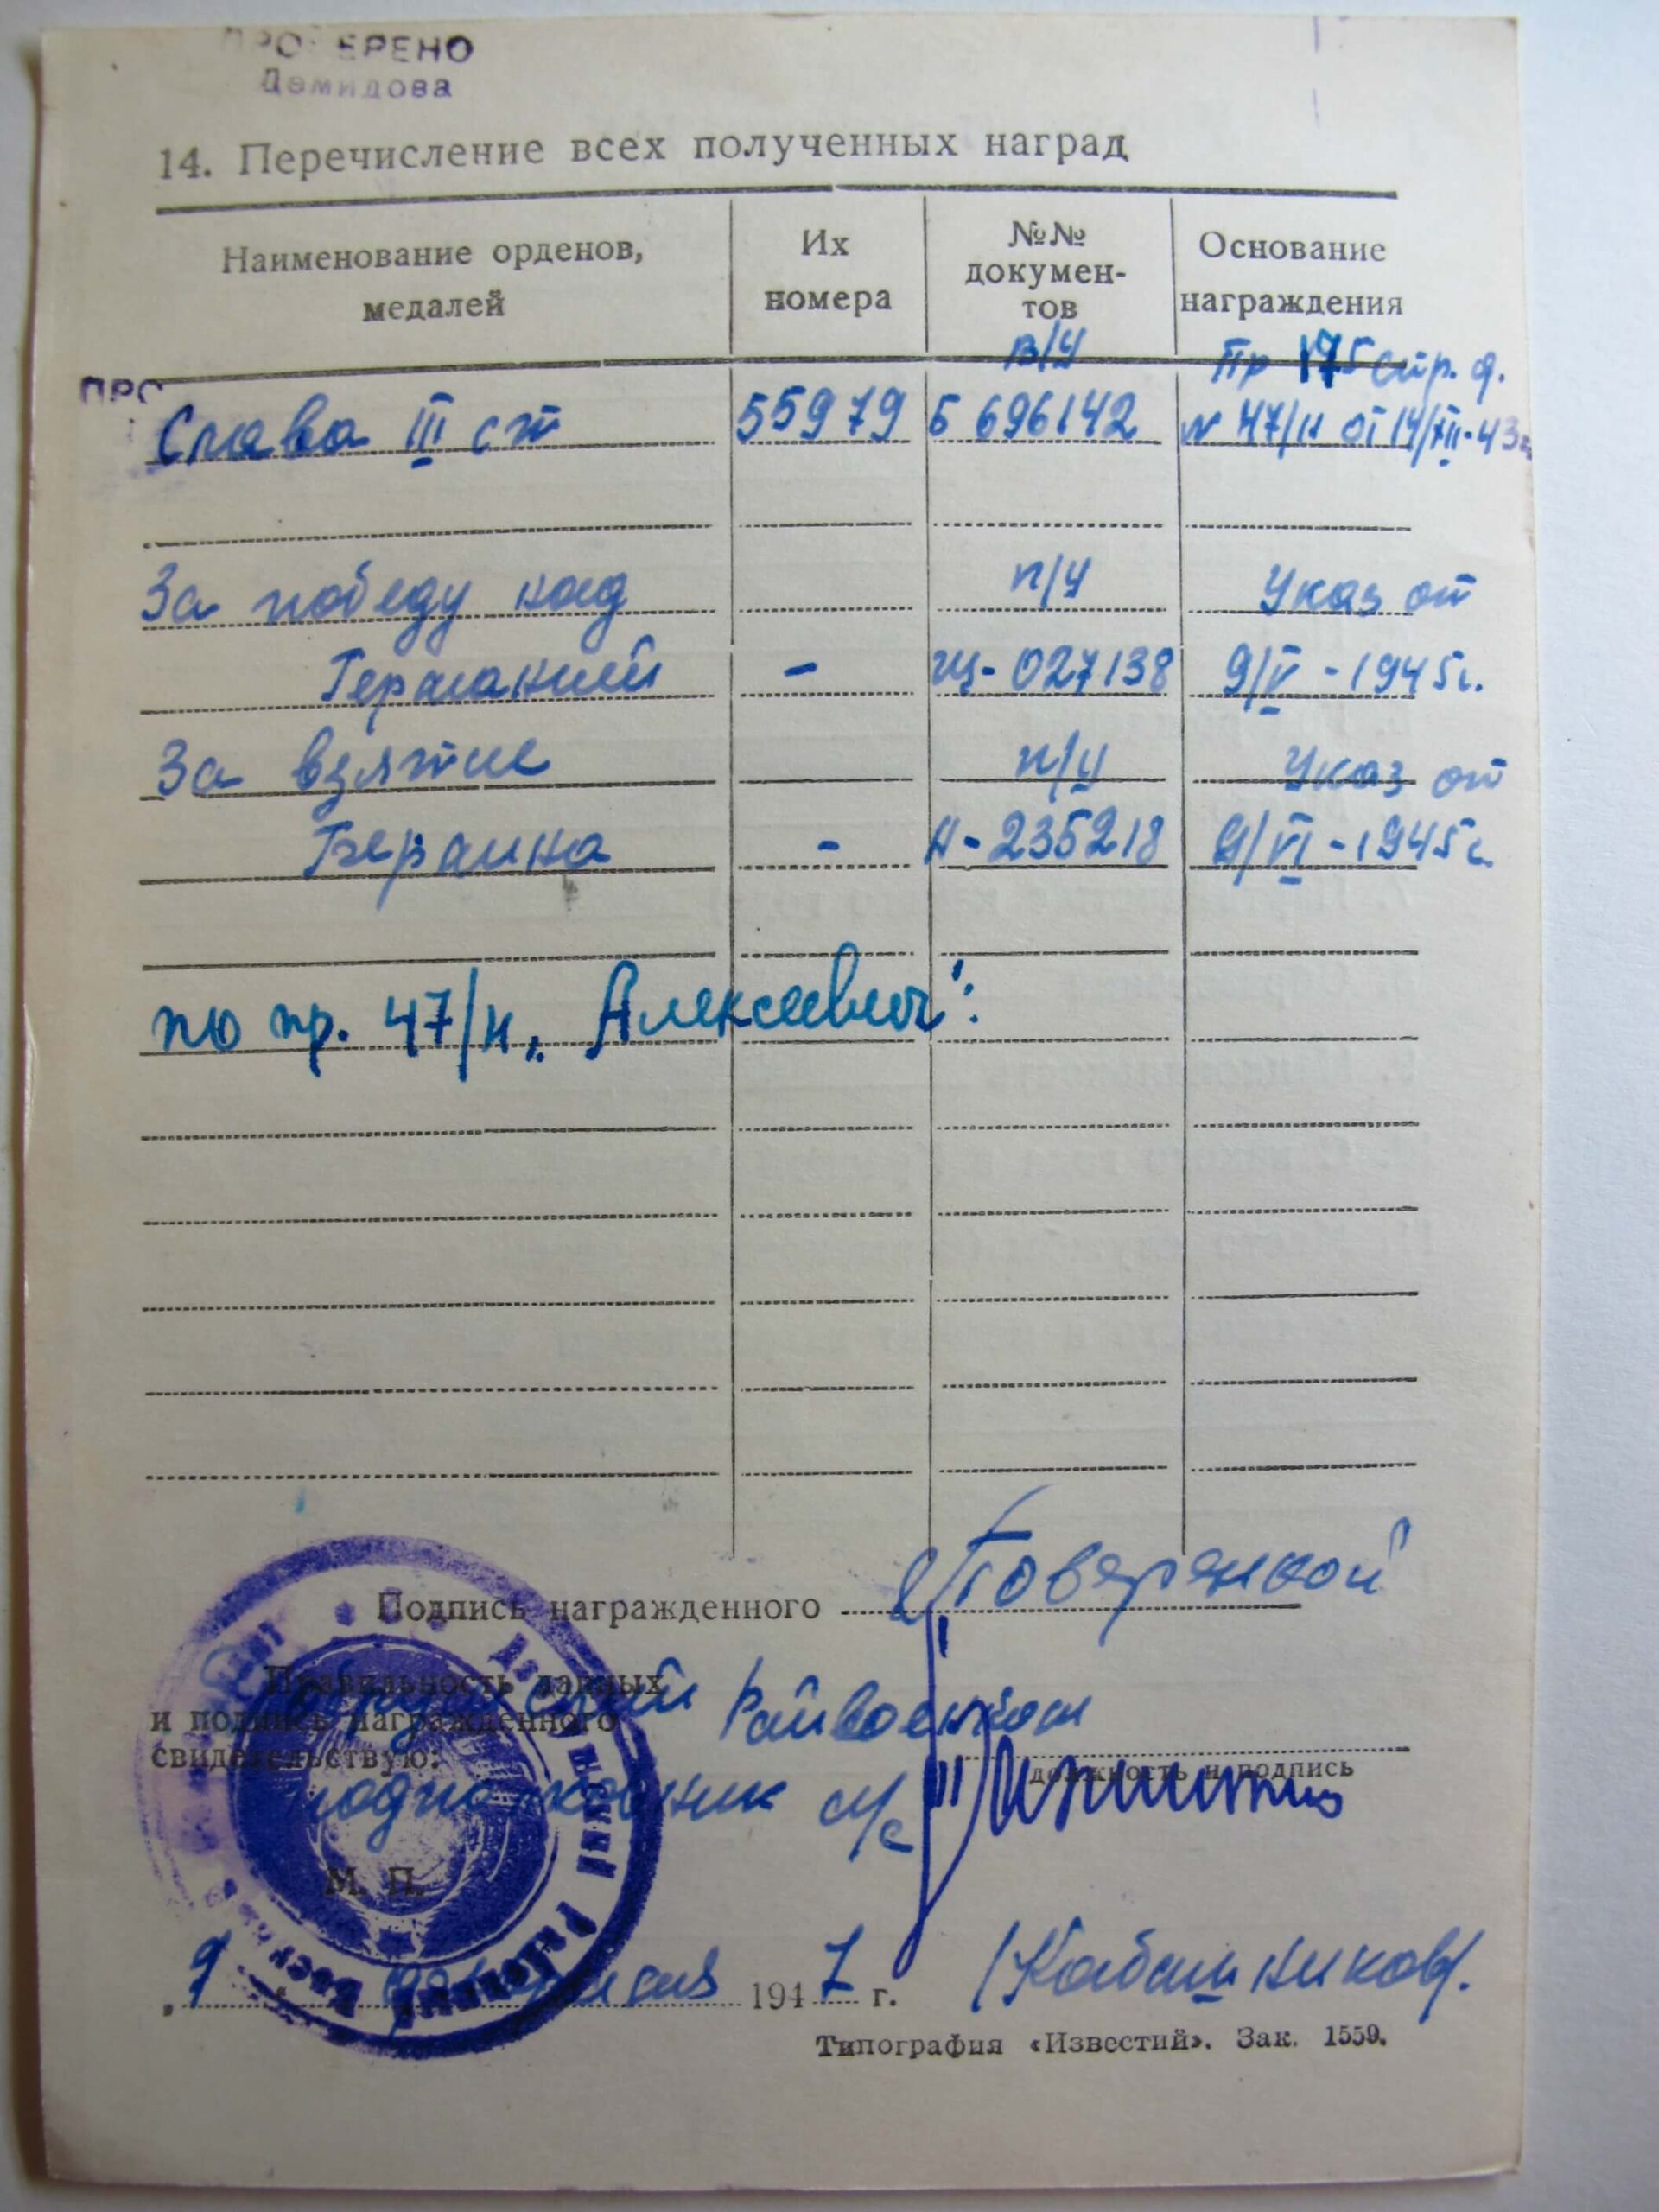 ПРОВЕРЕНО
Демидова
14. Перечисление всех полученных наград
Наименование орденов, медалей
Их номера
№№ документов
Основание награждения
в/у Пр 175 стр. д.
ПРО
Слава III ст 55979 Б 696142 № 47/н от 14/XII-43г.
За победу над п/у Указ от
Германией - Щ-027138 9/V-1945г.
За взятие п/у Указ от
Берлина - А-235218 9/VI-1945г.
по пр. 47/н „Алексеевич":
Подпись награжденного
Правильность данных
и подпись награжденного Райвоенком
свидетельствую:
должность и подпись
подполковник а/с
М. П.
„9" 1947 г. /Кабашников/.
Типография «Известий». Зак. 1559.